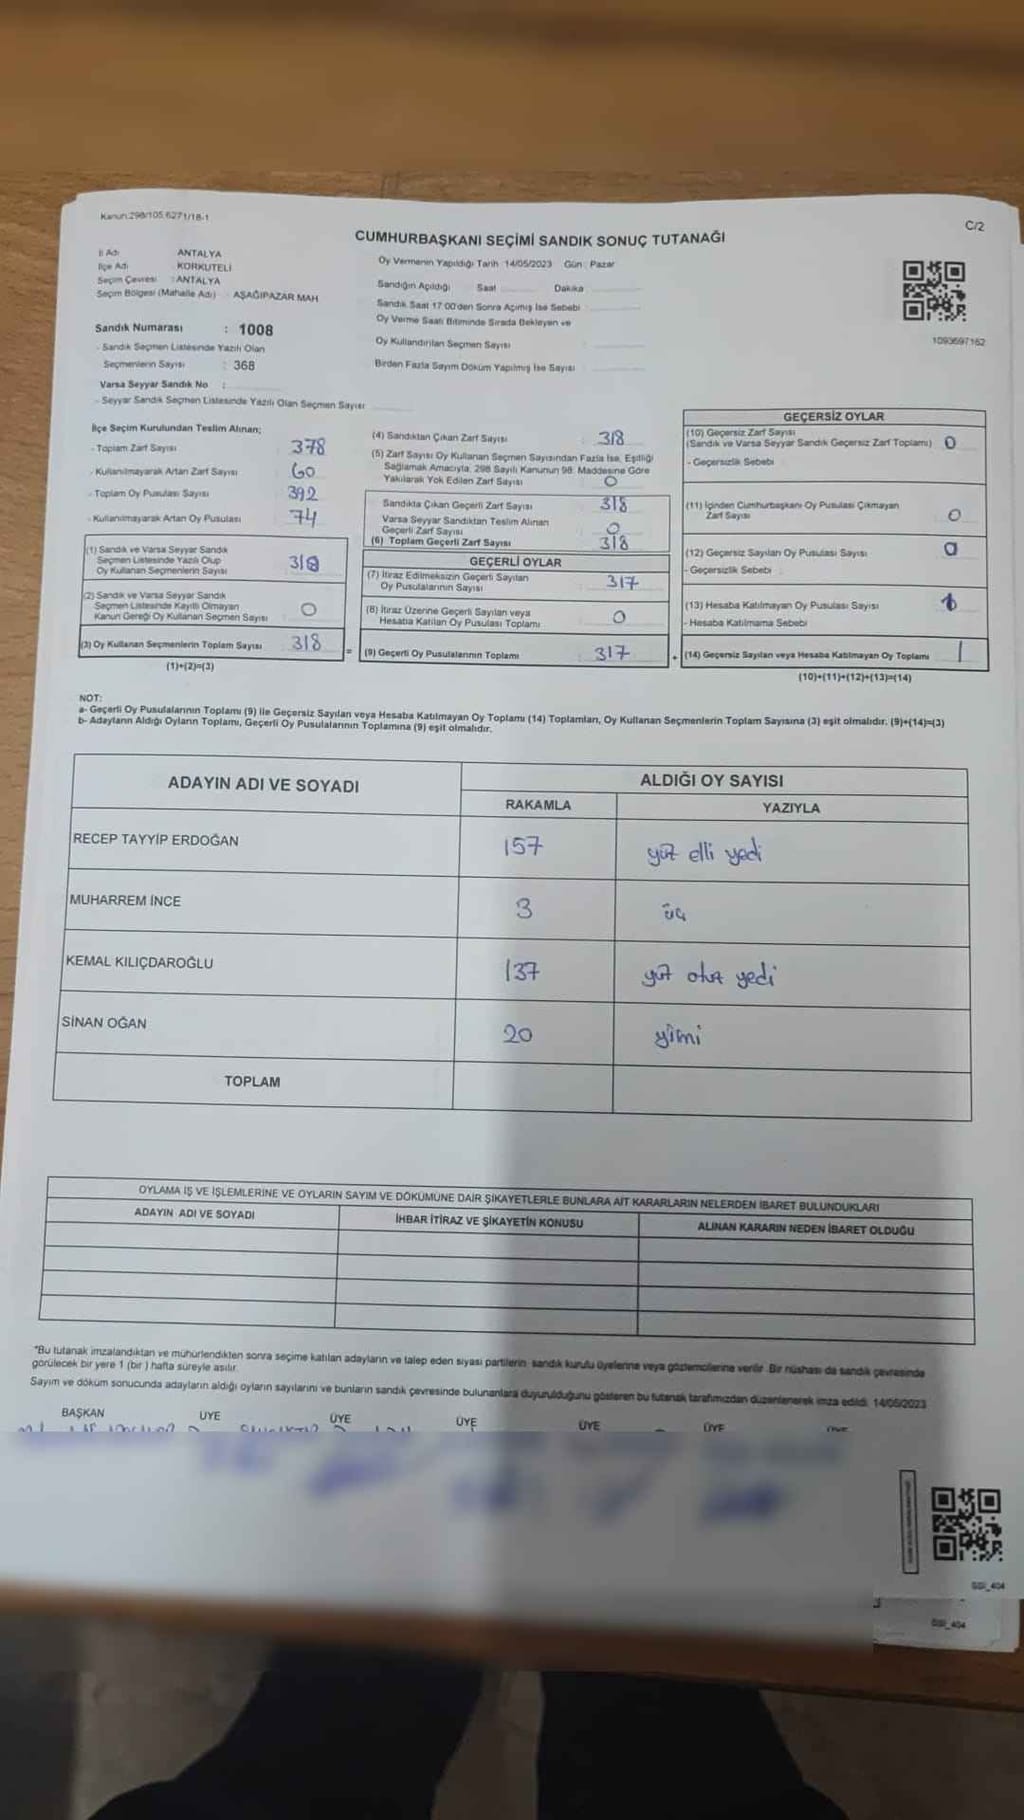 Kanun:298/105,6271/18-1
C/2
CUMHURBAŞKANI SEÇİMİ SANDIK SONUÇ TUTANAĞI
İl Adı : ANTALYA
İlçe Adı : KORKUTELİ
Seçim Çevresi : ANTALYA
Seçim Bölgesi (Mahalle Adı) : AŞAĞIPAZAR MAH
Sandık Numarası : 1008
- Sandık Seçmen Listesinde Yazılı Olan
Seçmenlerin Sayısı : 368
Varsa Seyyar Sandık No :
- Seyyar Sandık Seçmen Listesinde Yazılı Olan Seçmen Sayısı
Oy Vermenin Yapıldığı Tarih 14/05/2023 Gün : Pazar
Sandığın Açıldığı Saat Dakika
Sandık Saat 17:00'den Sonra Açımış İse Sebebi :
Oy Verme Saati Bitiminde Sırada Bekleyen ve
Oy Kullandırılan Seçmen Sayısı :
Birden Fazla Sayım Döküm Yapılmış İse Sayısı :
1093697162
İlçe Seçim Kurulundan Teslim Alınan;
- Toplam Zarf Sayısı 378
- Kullanılmayarak Artan Zarf Sayısı 60
- Toplam Oy Pusulası Sayısı 392
- Kullanılmayarak Artan Oy Pusulası 74
(1) Sandık ve Varsa Seyyar Sandık
Seçmen Listesinde Yazılı Olup
Oy Kullanan Seçmenlerin Sayısı 318
(2) Sandık ve Varsa Seyyar Sandık
Seçmen Listesinde Kayıtlı Olmayan
Kanun Gereği Oy Kullanan Seçmen Sayısı 0
(3) Oy Kullanan Seçmenlerin Toplam Sayısı 318
(1)+(2)=(3)
(4) Sandıktan Çıkan Zarf Sayısı : 318
(5) Zarf Sayısı Oy Kullanan Seçmen Sayısından Fazla İse, Eşitliği
Sağlamak Amacıyla, 298 Sayılı Kanunun 98. Maddesine Göre
Yakılarak Yok Edilen Zarf Sayısı 0
Sandıkta Çıkan Geçerli Zarf Sayısı : 318
Varsa Seyyar Sandıktan Teslim Alınan
Geçerli Zarf Sayısı : 0
(6) Toplam Geçerli Zarf Sayısı : 318
GEÇERLİ OYLAR
(7) İtiraz Edilmeksizin Geçerli Sayılan
Oy Pusulalarının Sayısı : 317
(8) İtiraz Üzerine Geçerli Sayılan veya
Hesaba Katılan Oy Pusulası Toplamı : 0
= (9) Geçerli Oy Pusulalarının Toplamı : 317
GEÇERSİZ OYLAR
(10) Geçersiz Zarf Sayısı
(Sandık ve Varsa Seyyar Sandık Geçersiz Zarf Toplamı) 0
- Geçersizlik Sebebi :
(11) İçinden Cumhurbaşkanı Oy Pusulası Çıkmayan
Zarf Sayısı 0
(12) Geçersiz Sayılan Oy Pusulası Sayısı 0
- Geçersizlik Sebebi :
(13) Hesaba Katılmayan Oy Pusulası Sayısı
- Hesaba Katılmama Sebebi
+ (14) Geçersiz Sayılan veya Hesaba Katılmayan Oy Toplamı 1
(10)+(11)+(12)+(13)=(14)
NOT:
a- Geçerli Oy Pusulalarının Toplamı (9) ile Geçersiz Sayılan veya Hesaba Katılmayan Oy Toplamı (14) Toplamları, Oy Kullanan Seçmenlerin Toplam Sayısına (3) eşit olmalıdır. (9)+(14)=(3)
b- Adayların Aldığı Oyların Toplamı, Geçerli Oy Pusulalarının Toplamına (9) eşit olmalıdır.
ADAYIN ADI VE SOYADI
ALDIĞI OY SAYISI
RAKAMLA YAZIYLA
RECEP TAYYİP ERDOĞAN 157 yüz elli yedi
MUHARREM İNCE 3 üç
KEMAL KILIÇDAROĞLU 137 yüz otuz yedi
SİNAN OĞAN 20 yirmi
TOPLAM
OYLAMA İŞ VE İŞLEMLERİNE VE OYLARIN SAYIM VE DÖKÜMÜNE DAİR ŞİKAYETLERLE BUNLARA AİT KARARLARIN NELERDEN İBARET BULUNDUKLARI
ADAYIN ADI VE SOYADI İHBAR İTİRAZ VE ŞİKAYETİN KONUSU ALINAN KARARIN NEDEN İBARET OLDUĞU
"Bu tutanak imzalandıktan ve mühürlendikten sonra seçime katılan adayların ve talep eden siyasi partilerin sandık kurulu üyelerine veya gözlemcilerine verilir. Bir nüshası da sandık çevresinde
görülecek bir yere 1 (bir ) hafta süreyle asılır.
Sayım ve döküm sonucunda adayların aldığı oyların sayılarını ve bunların sandık çevresinde bulunanlara duyurulduğunu gösteren bu tutanak tarafımızdan düzenlenerek imza edildi. 14/05/2023
BAŞKAN ÜYE ÜYE ÜYE ÜYE ÜYE ÜYE
GSI_404
GSI_404